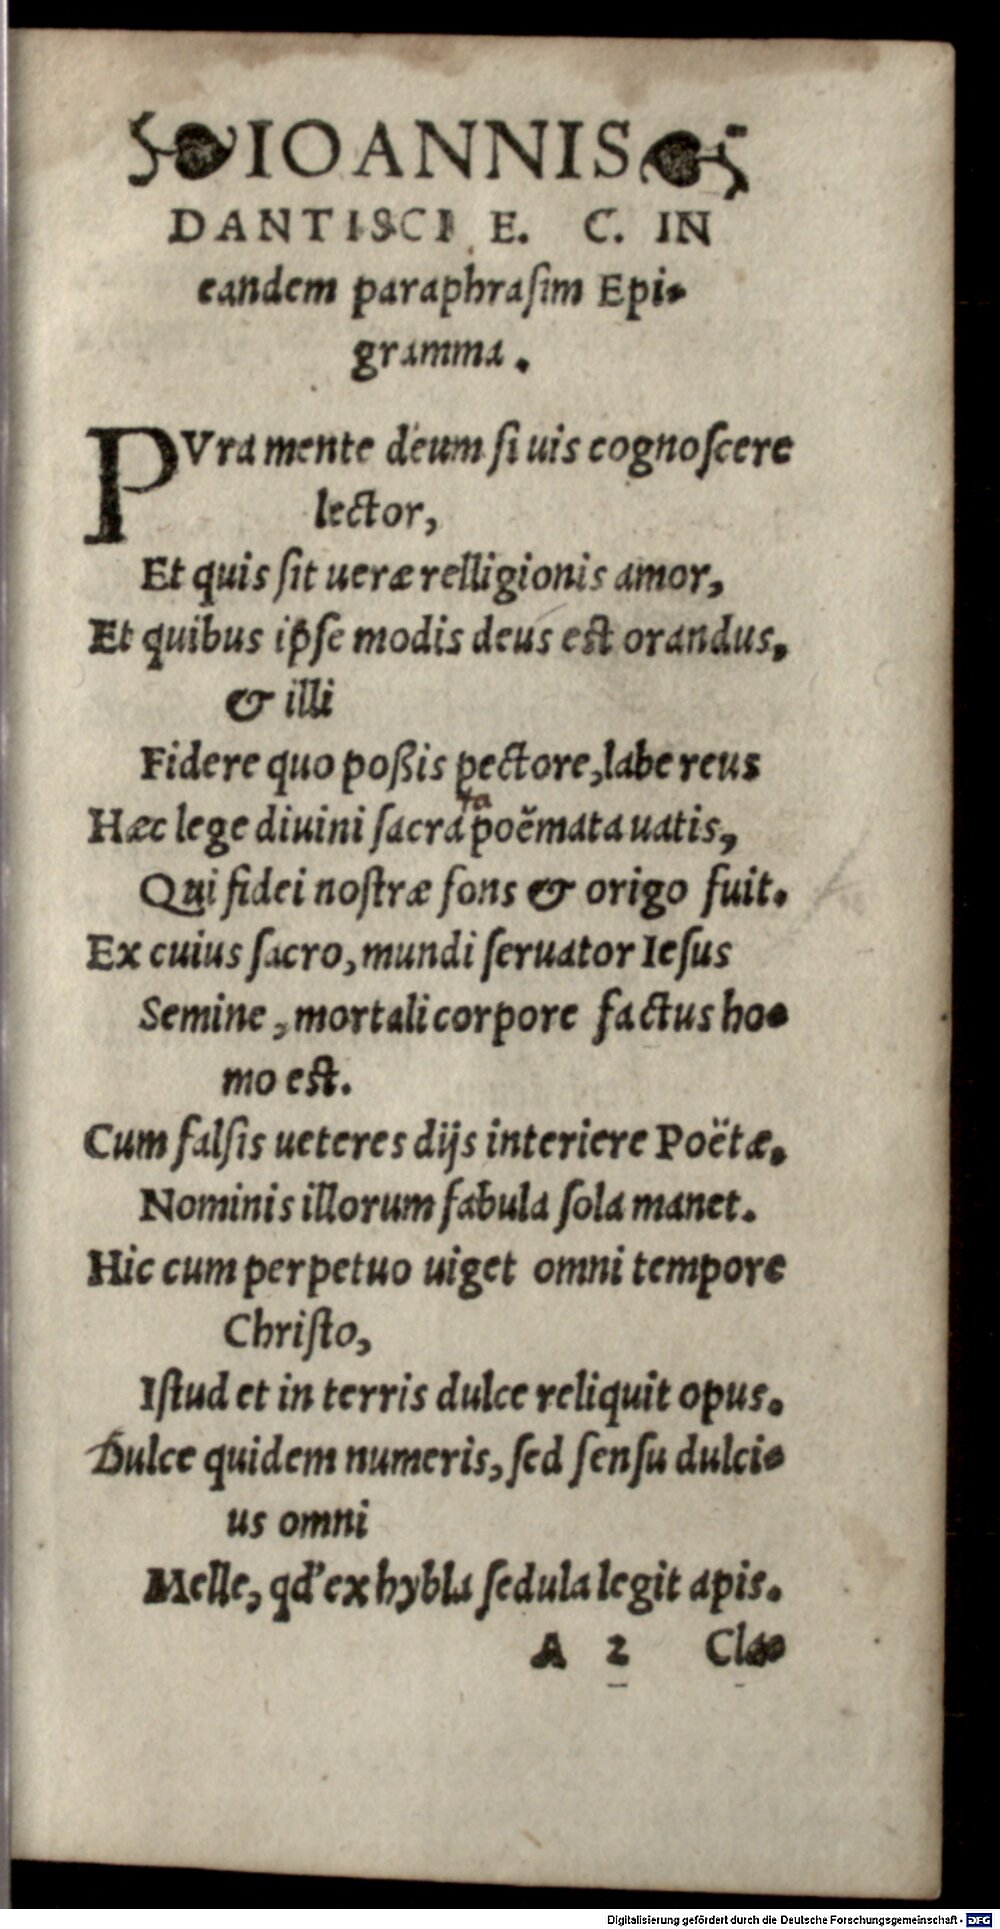 IOANNIS
DANTISCI E. C. IN
eandem paraphraſim Epi-
gramma.
PVra mente deum ſi uis cognoſcere
lector,
Et quis ſit ueræ relligionis amor,
Et quibus ipſe modis deus est orandus,
& illi
Fidere quo poßis pectore, labe reus
ta
Hæc lege diuini ſacra poëmata uatis,
Qui fidei noſtræ fons & origo fuit.
Ex cuius ſacro, mundi ſeruator Ieſus
Semine, mortali corpore factus ho-
mo est.
Cum falſis ueteres dijs interiere Poëtæ.
Nominis illorum fabula ſola manet.
Hic cum perpetuo uiget omni tempore
Chriſto,
Iſtud et in terris dulce reliquit opus.
Dulce quidem numeris, ſed ſenſu dulci-
us omni
Melle, qd' ex hybla ſedula legit apis.
A 2 Cla-
Digitalisierung gefördert durch die Deutsche Forschungsgemeinschaft - DFG